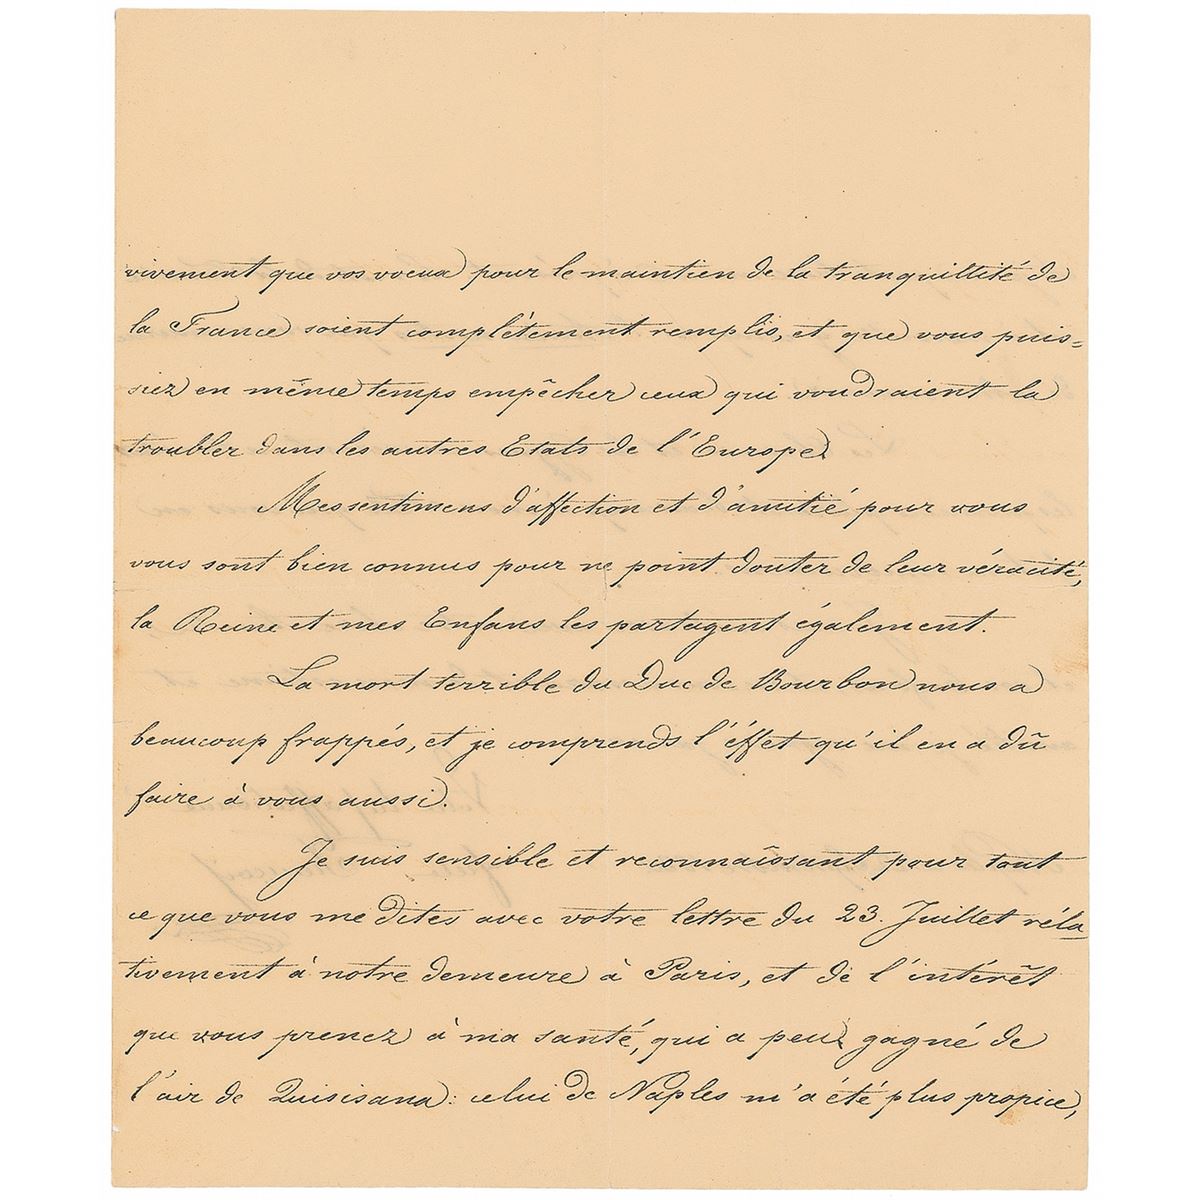 vivement que vos voeux pour le maintien de la tranquillité de
la France soient complètement remplis, et que vous puis=
siez en même temps empêcher ceux qui voudraient la
troubler dans les autres Etats de l'Europe.
Mes sentimens d'affection et d'amitié pour vous
vous sont bien connus pour ne point douter de leur véracité,
la Reine et mes Enfans les partagent également.
La mort terrible du Duc de Bourbon nous a
beaucoup frappés, et je comprends l'éffet qu'il en a dû
faire à vous aussi.
Je suis sensible et reconnaîssant pour tout
ce que vous me dites avec votre lettre du 23. Juillet réla-
tivement à notre demeure à Paris, et de l'intérêt
que vous prenez à ma santé, qui a peu gagné de
l'air de Quisisana: celui de Naples m'a été plus propice,